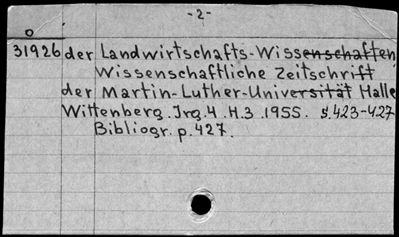 -2-
31926 der Landwirtschafts-Wissenschaften
Wissenschaftliche Zeitschrift
der Martin-Luther-Universität Halle
Wittenberg. Jrg.4. H.3. 1955. S.423-427
Bibliogr. p.427.